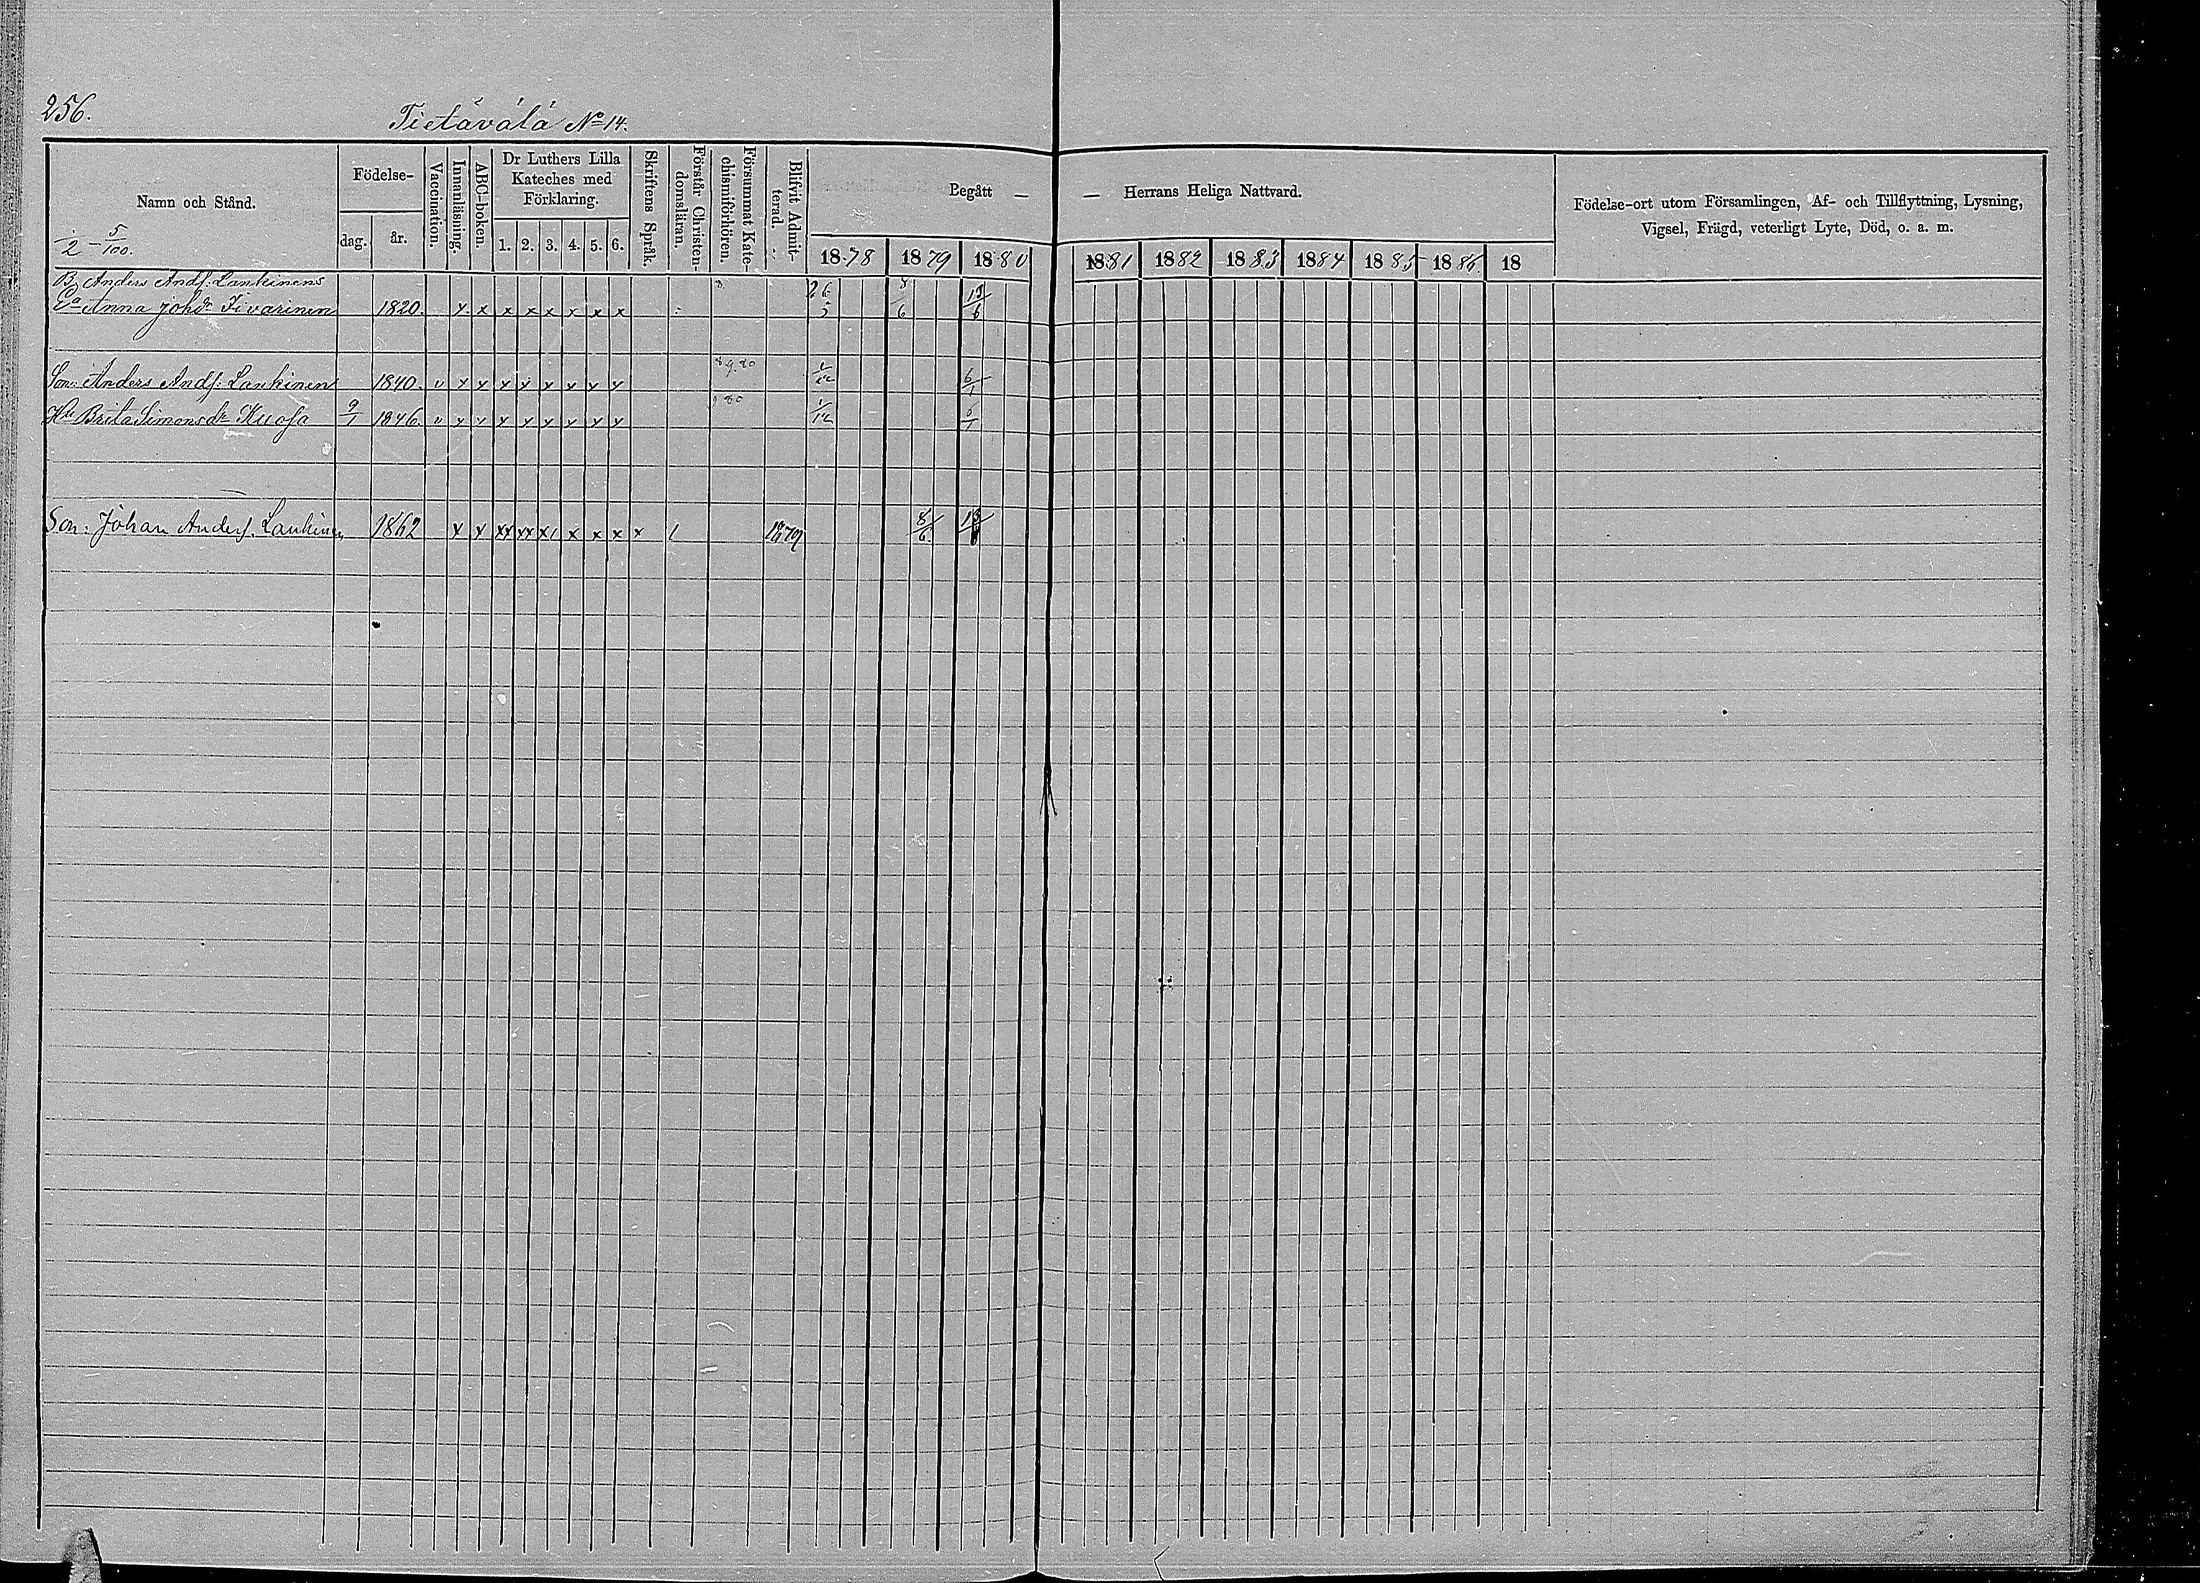 256.
Tietävälä No 14.
Namn och Stånd.
Födelse-
dag.
år.
Vaccination.
Innanläsning.
ABC-boken.
Dr Luthers Lilla
Kateches med
Förklaring.
1. 2. 3. 4. 5. 6.
Skriftens Språk.
Förstår Christen-
domsläran.
Försummat Kate-
chismiförhören.
Blifvit Admit-
terad.
Begått — — Herrans Heliga Nattvard.
1878 1879 1880 1881 1882 1883 1884 1885 1886 18
Födelse-ort utom Församlingen, Af- och Tillflyttning, Lysning,
Vigsel, Frägd, veterligt Lyte, Död, o. a. m.
5/100.
B Anders Andf. Lankinens
Ea Anna Johdr Iivarinen 1820. x x x x x x x x 26/5 8/6 13/6
Son: Anders Andf. Lankinen 1840. v x x x x x x x x 1/12 6/1
Hu Brita Simonsdr Kuosa 9/1 1846. v x x x x x x x x 1/12 6/1
Son: Johan Andersf. Lankinen 1862 x x xx xx x1 x x x x 1 1879 8/6. 13/6